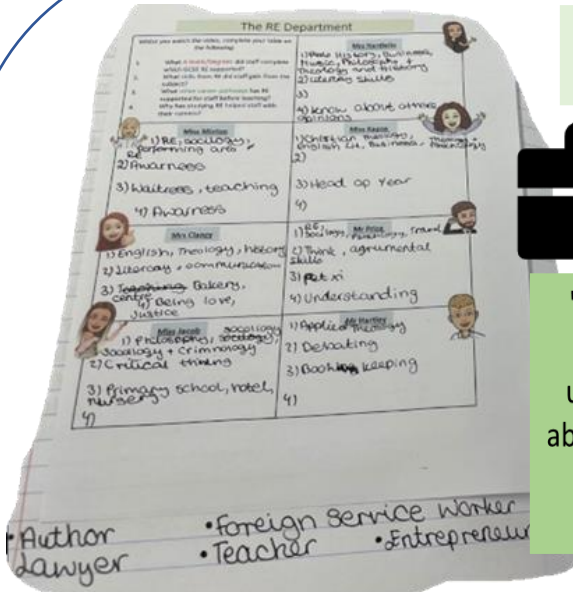 The RE Department
Whilst you watch the video, complete your table on
the following:
1. What A levels/Degrees did staff complete
which GCSE RE supported?
2. What skills from RE did staff gain from the
subject?
3. What other career pathways has RE
supported for staff before teaching?
4. Why has studying RE helped staff with
their careers?
1) History, Business,
Music, Philosophy +
Theology and History
2) Literacy skills
3)
4) Know about others
opinions
Miss Morton
1) RE, sociology,
performing arts
RE
2) Awarness
3) Waitress, teaching
4) Awarness
1) Christian theology,
English Lit, Business,
2)
3) Head of Year
4)
Mrs Clancy
1) English, Theology, history
2) Literacy, communication
3) Bakery,
centre
4) Being love,
Justice
Mr Price
1) RE, Sociology, Travel
2) Think, agrumental
skills
3) Pet xi
4) Understanding
Miss Jacob
1) Philosophy, sociology,
socology + Criminology
2) Critical thinking
3) Primary school, hotel,
nursery
4)
Mr Hartley
1) Applied Theology
2) Debating
3) Book keeping
4)
• Author
• Foreign Service Worker
Lawyer
• Teacher
• Entrepreneur
u
ab